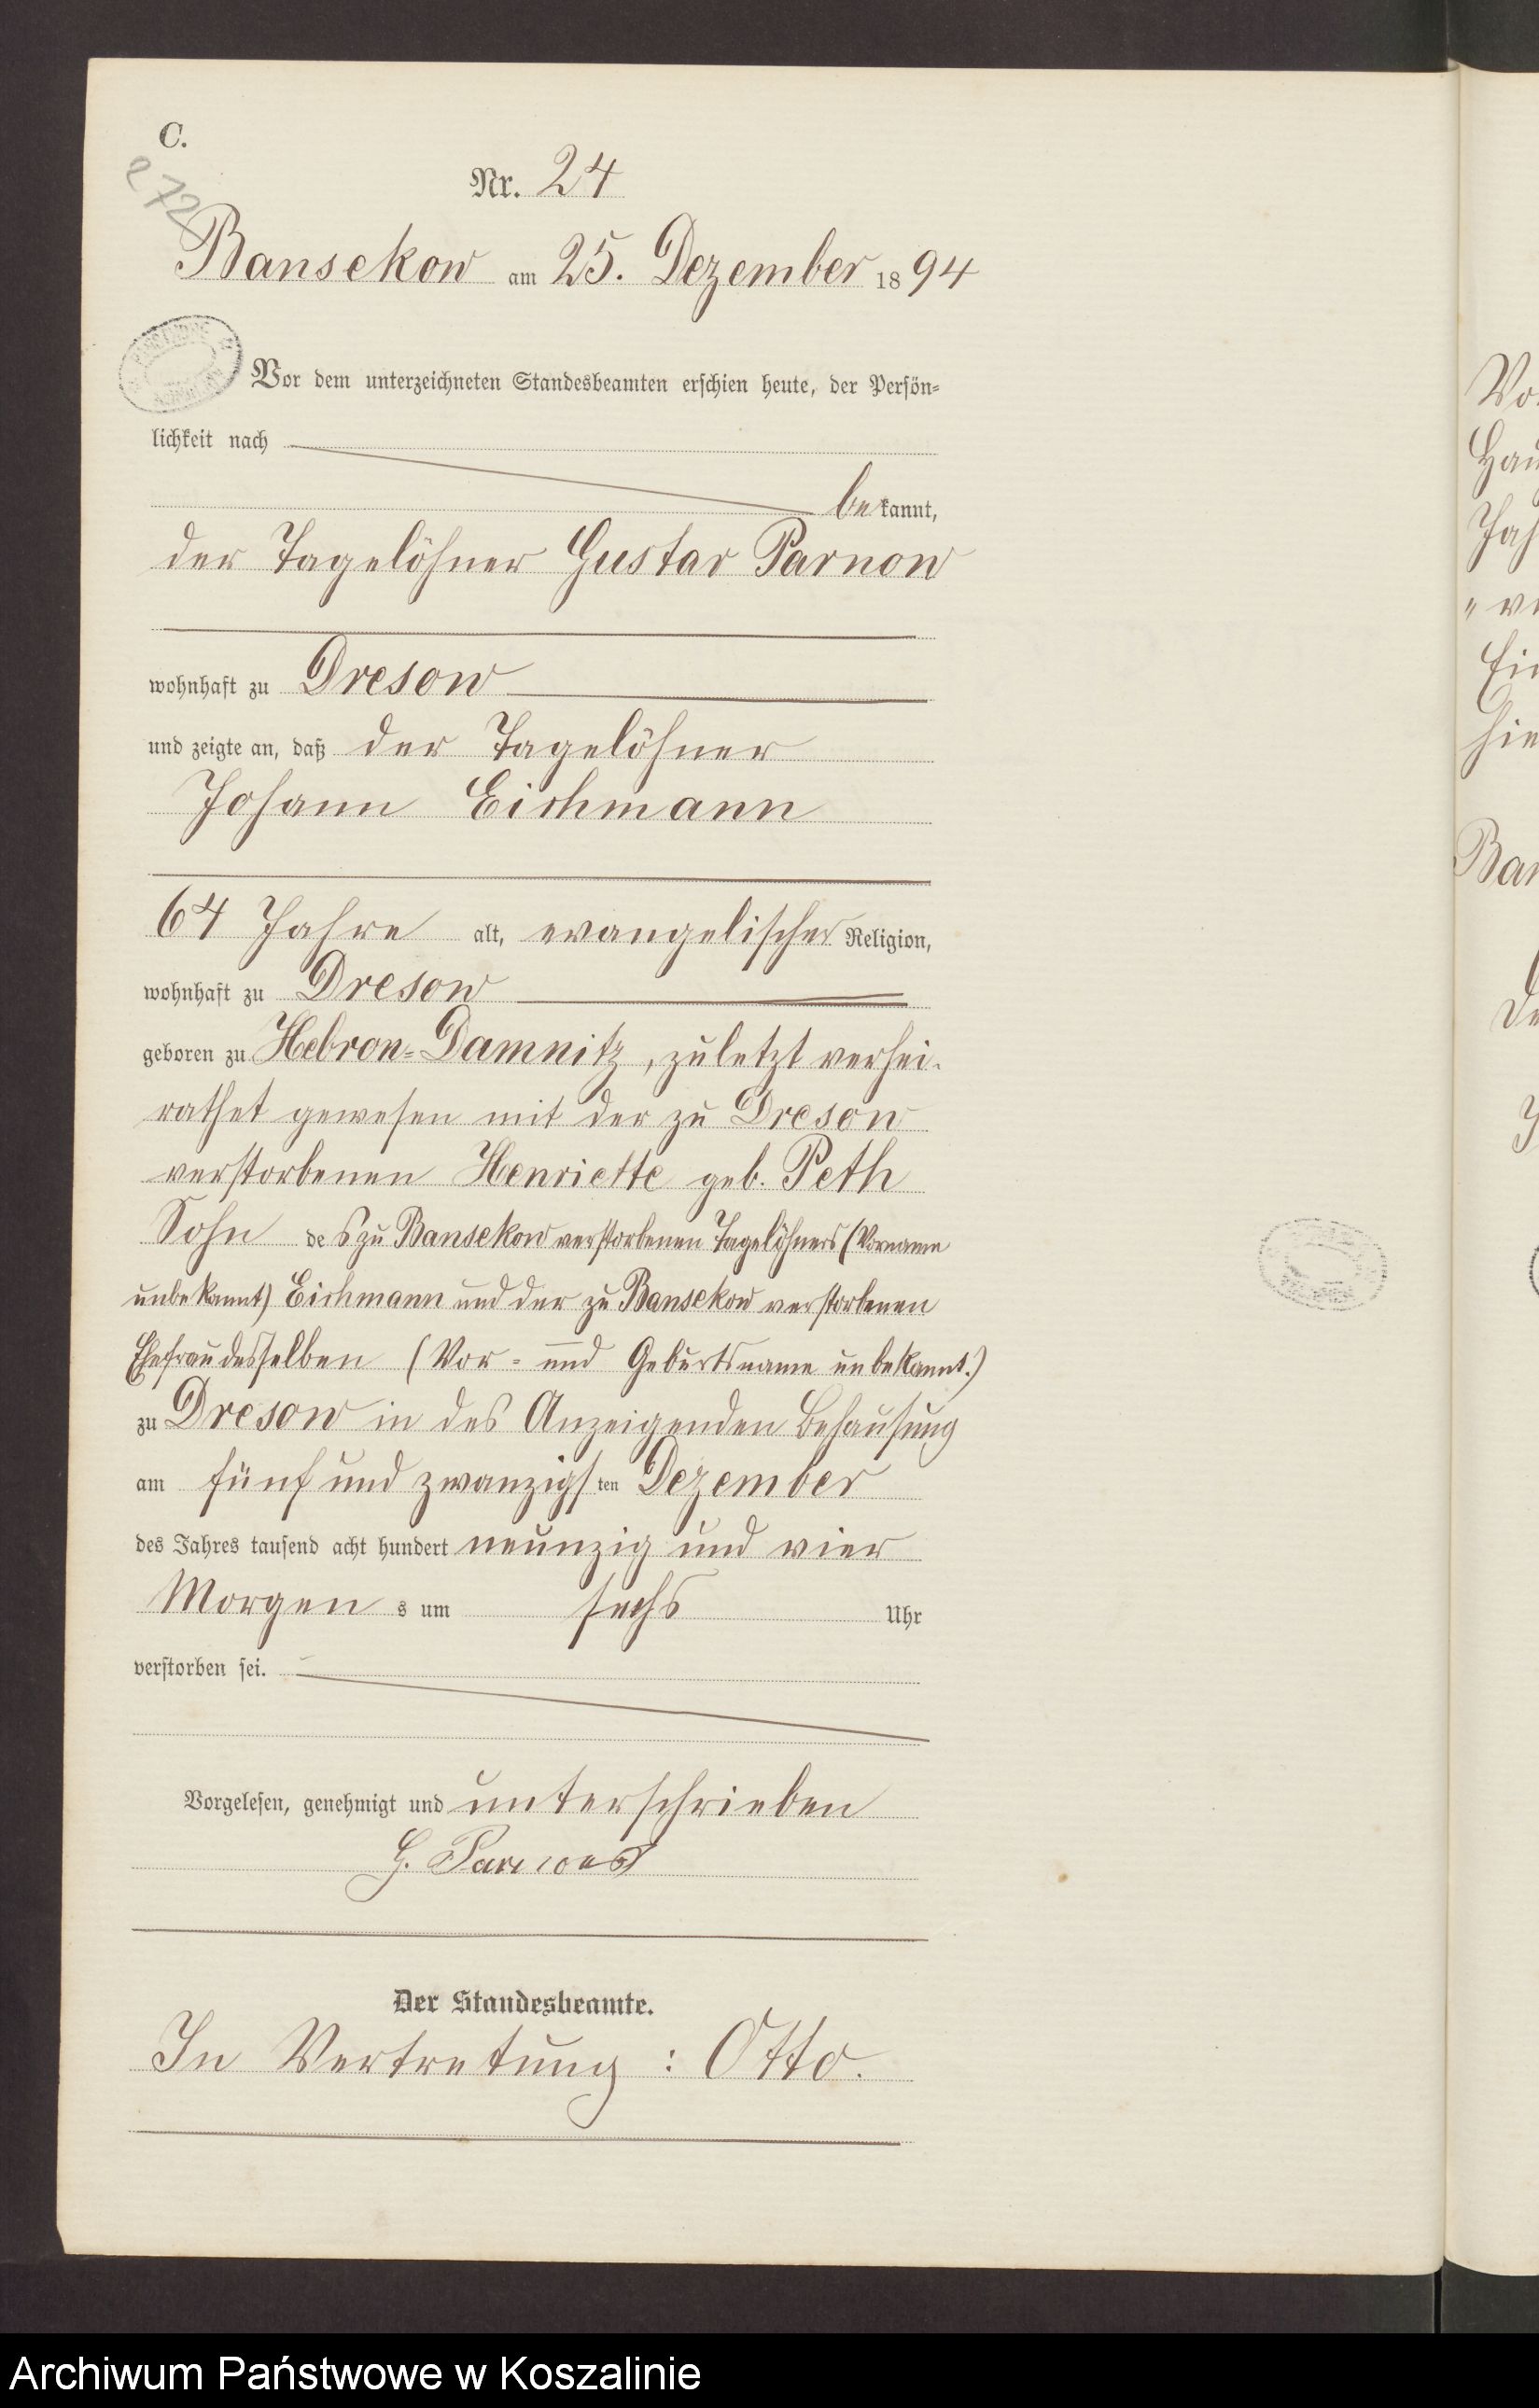 C.
272
Nr. 24
Bansekow am 25. Dezember 1894
Vor dem unterzeichneten Standesbeamten erschien heute, der Persön-
lichkeit nach
bekannt,
der Tagelöhner Gustav Parnow
wohnhaft zu Dresow
und zeigte an, daß der Tagelöhner
Johann Eichmann
64 Jahre alt, evangelischer Religion,
wohnhaft zu Dresow
geboren zu Hebron-Damnitz, zuletzt verhei-
rathet gewesen mit der zu Dresow
verstorbenen Henriette geb. Peth
Sohn des zu Bansekow verstorbenen Tagelöhners (Vorname
unbekannt) Eichmann und der zu Bansekow verstorbenen
Ehefrau desselben (Vor- und Geburtsname unbekannt.)
zu Dresow in des Anzeigenden Behausung
am fünf und zwanzigsten Dezember
des Jahres tausend acht hundert neunzig und vier
Morgens um sechs Uhr
verstorben sei.
Vorgelesen, genehmigt und unterschrieben
G. Parnow
Der Standesbeamte.
In Vertretung: Otto.
Archiwum Państwowe w Koszalinie